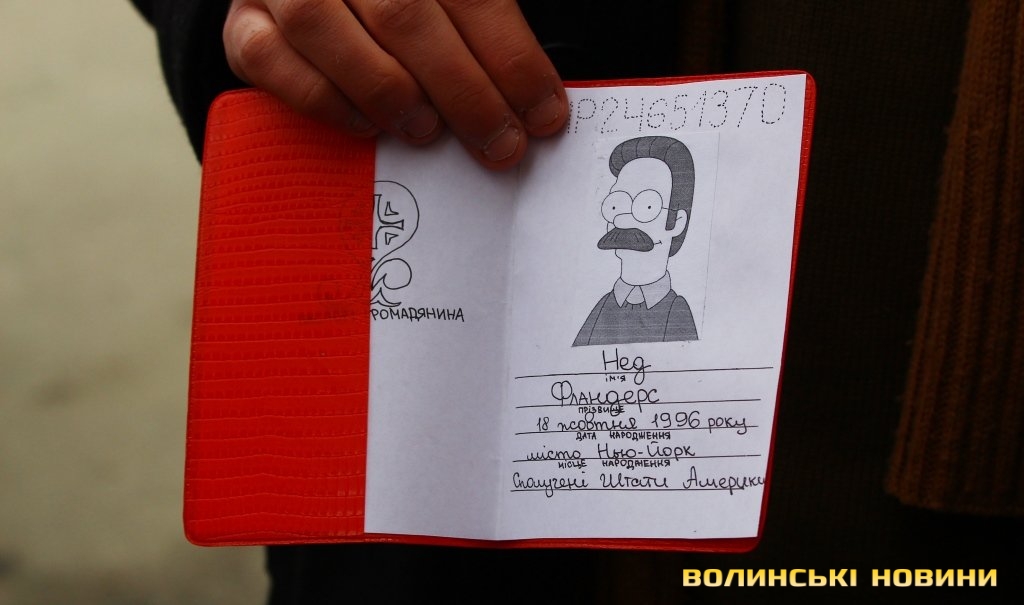 P24651370
РОМАДЯНИНА
Нед
ІМ'Я
Фландерс
ПРІЗВИЩЕ
18 жовтня 1996 року
ДАТА НАРОДЖЕННЯ
місто Нью-Йорк
МІСЦЕ НАРОДЖЕННЯ
Сполучені Штати Америки
ВОЛИНСЬКІ НОВИНИ